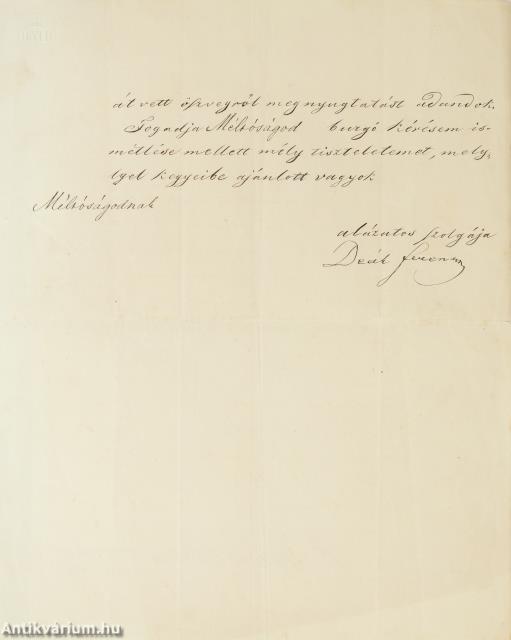 át vett öszvegről megnyugtatást adandok.
Fogadja Méltóságod buzgó kérésem is-
métlése mellett mély tiszteletemet, mely,
lyel kegyeibe ajánlott vagyok
Méltóságodnak
alázatos szolgája
Deák Ferenc
Antikvárium.hu